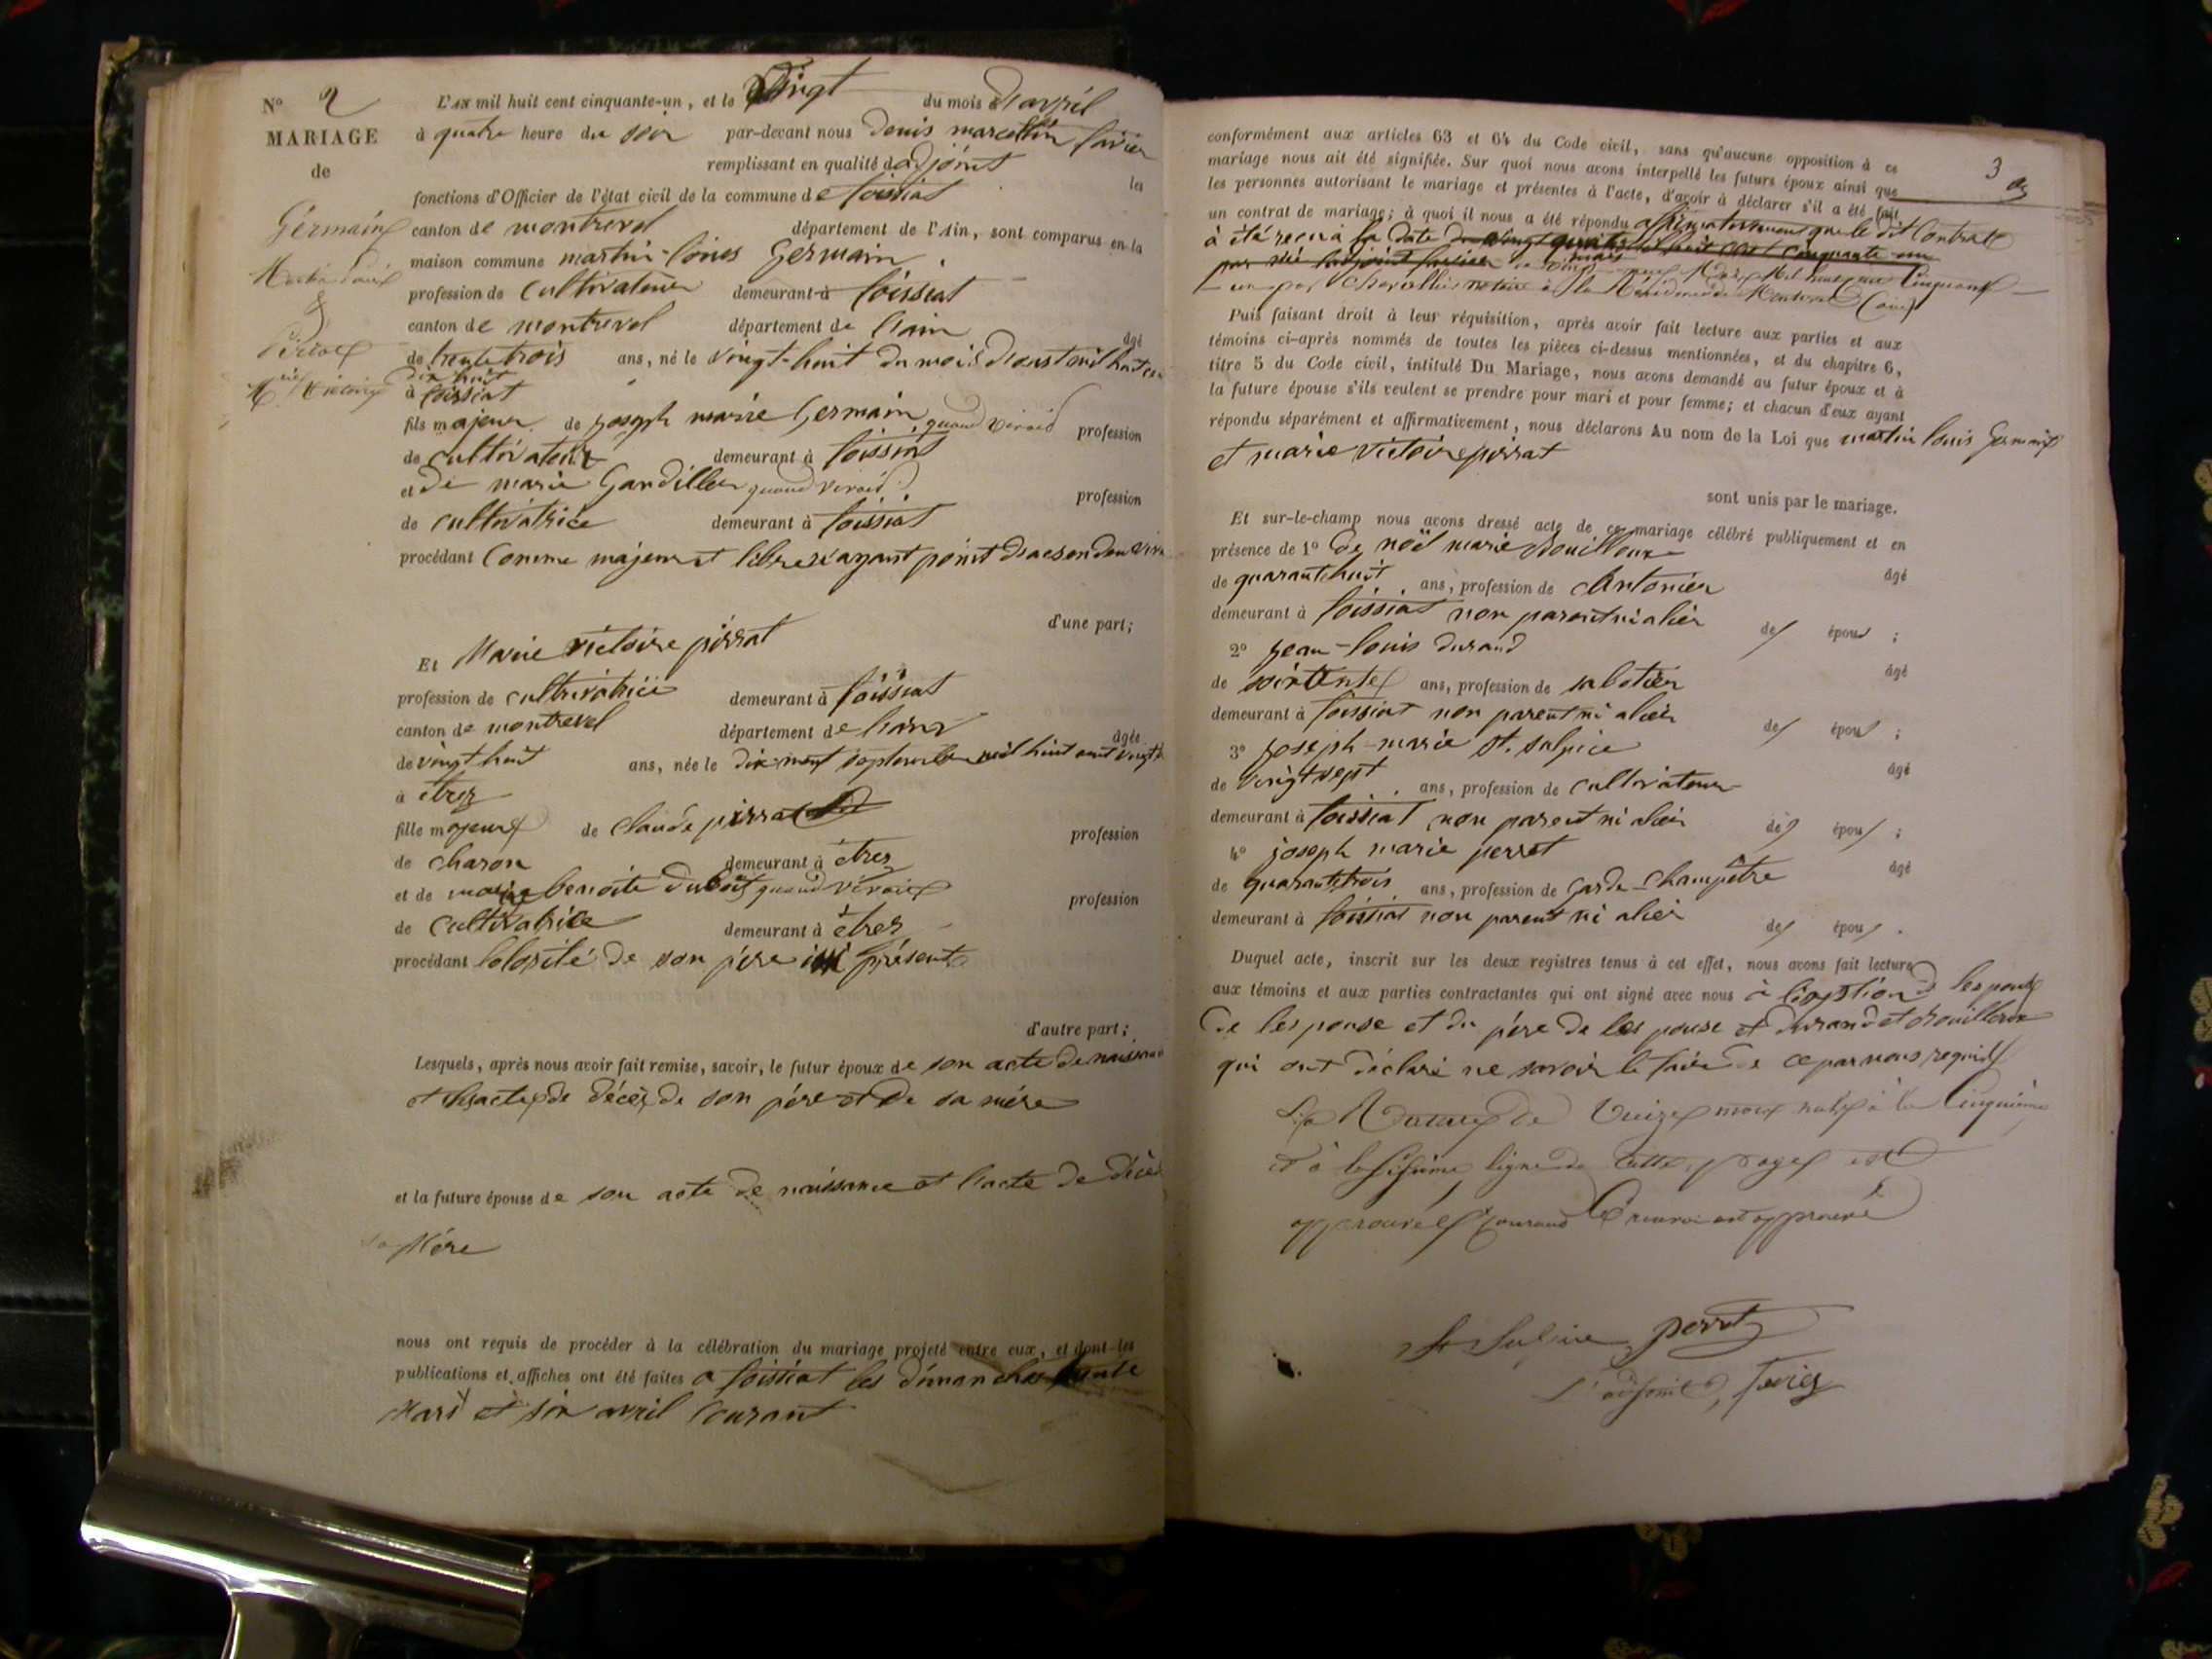 N° 2 L'AN mil huit cent cinquante-un, et le Vingt du mois d'avril
MARIAGE à quatre heure du soir par-devant nous denis marcellin favier
de remplissant en qualité d'adjoint les
fonctions d'Officier de l'état civil de la commune de foissiat
Germain canton de montrevel département de l'Ain, sont comparus en la
maison commune martin-louis Germain
Martin Louis profession de Cultivateur demeurant à foissiat
& canton de montrevel département de l'ain âgé
Pirat de trente trois ans, né le vingt-huit du mois d'oust mil huit cen
M.rie Victoire dix huit
à foissiat
fils majeur de joseph marie Germain quand vivoid profession
de cultivateur demeurant à foissiat
et de marie Gandillen quand vivoid profession
de cultivatrice demeurant à foissiat
procédant Comme majeur et libre n'ayant point
d'une part;
Et Marie victoire pirrat
profession de cultivatrice demeurant à foissiat
canton de montrevel département de l'ain âgée
de vingt huit ans, née le dix-neuf septembre mil huit cent vingt
à étrez
fille majeure de claude pirrat profession
de charon demeurant à étrez
et de marie benoite dubois quand vivoit profession
de Cultivatrice demeurant à étrez
procédant de son père présent
d'autre part;
Lesquels, après nous avoir fait remise, savoir, le futur époux de son acte de naissance
et l'acte de décès de son père et de sa mère
et la future épouse de son acte de naissance et l'acte de décès
sa Mère
nous ont requis de procéder à la célébration du mariage projeté entre eux, et dont les
publications et affiches ont été faites a foissiat les dimanches trente
Mars et six avril Courant
3
conformément aux articles 63 et 64 du Code civil, sans qu'aucune opposition à ce
mariage nous ait été signifiée. Sur quoi nous avons interpellé les futurs époux ainsi que
les personnes autorisant le mariage et présentes à l'acte, d'avoir à déclarer s'il a été fait
un contrat de mariage; à quoi il nous a été répondu affirmativement que le dit Contrat
à été reçu à la date du vingt quatre mil huit cent cinquante un
mars
un par Chevallier notaire à la Résidence de Montrevel (ain)
Puis faisant droit à leur réquisition, après avoir fait lecture aux parties et aux
témoins ci-après nommés de toutes les pièces ci-dessus mentionnées, et du chapitre 6,
titre 5 du Code civil, intitulé Du Mariage, nous avons demandé au futur époux et à
la future épouse s'ils veulent se prendre pour mari et pour femme; et chacun d'eux ayant
répondu séparément et affirmativement, nous déclarons Au nom de la Loi que martin louis Germain
et marie victoire pirrat
sont unis par le mariage.
Et sur-le-champ nous avons dressé acte de ce mariage célébré publiquement et en
présence de 1° de noël marie drouilloux âgé
de quarante huit ans, profession de Cantonier
demeurant à foissiat non parent ni aliér des époux ;
2° jean-louis durand âgé
de soixente ans, profession de sabotier
demeurant à foissiat non parent ni aliér des époux ;
3° joseph-marie st. sulpice âgé
de vingt sept ans, profession de cultivateur
demeurant à foissiat non parent ni aliér des époux ;
4° joseph marie perret âgé
de quarante trois ans, profession de Garde-Champêtre
demeurant à foissiat non parent ni aliér des époux .
Duquel acte, inscrit sur les deux registres tenus à cet effet, nous avons fait lecture
aux témoins et aux parties contractantes qui ont signé avec nous à l'exption de lespoux
de lespouse et du père de lespouse et durand et drouilloux
qui ont déclaré ne savoir le faire de ce par nous requis
La Rature de treize mots nuls à la Cinquième
et à la sixième ligne de cette page est
approuvée
St Sulpice perret
L'adjoint, favier